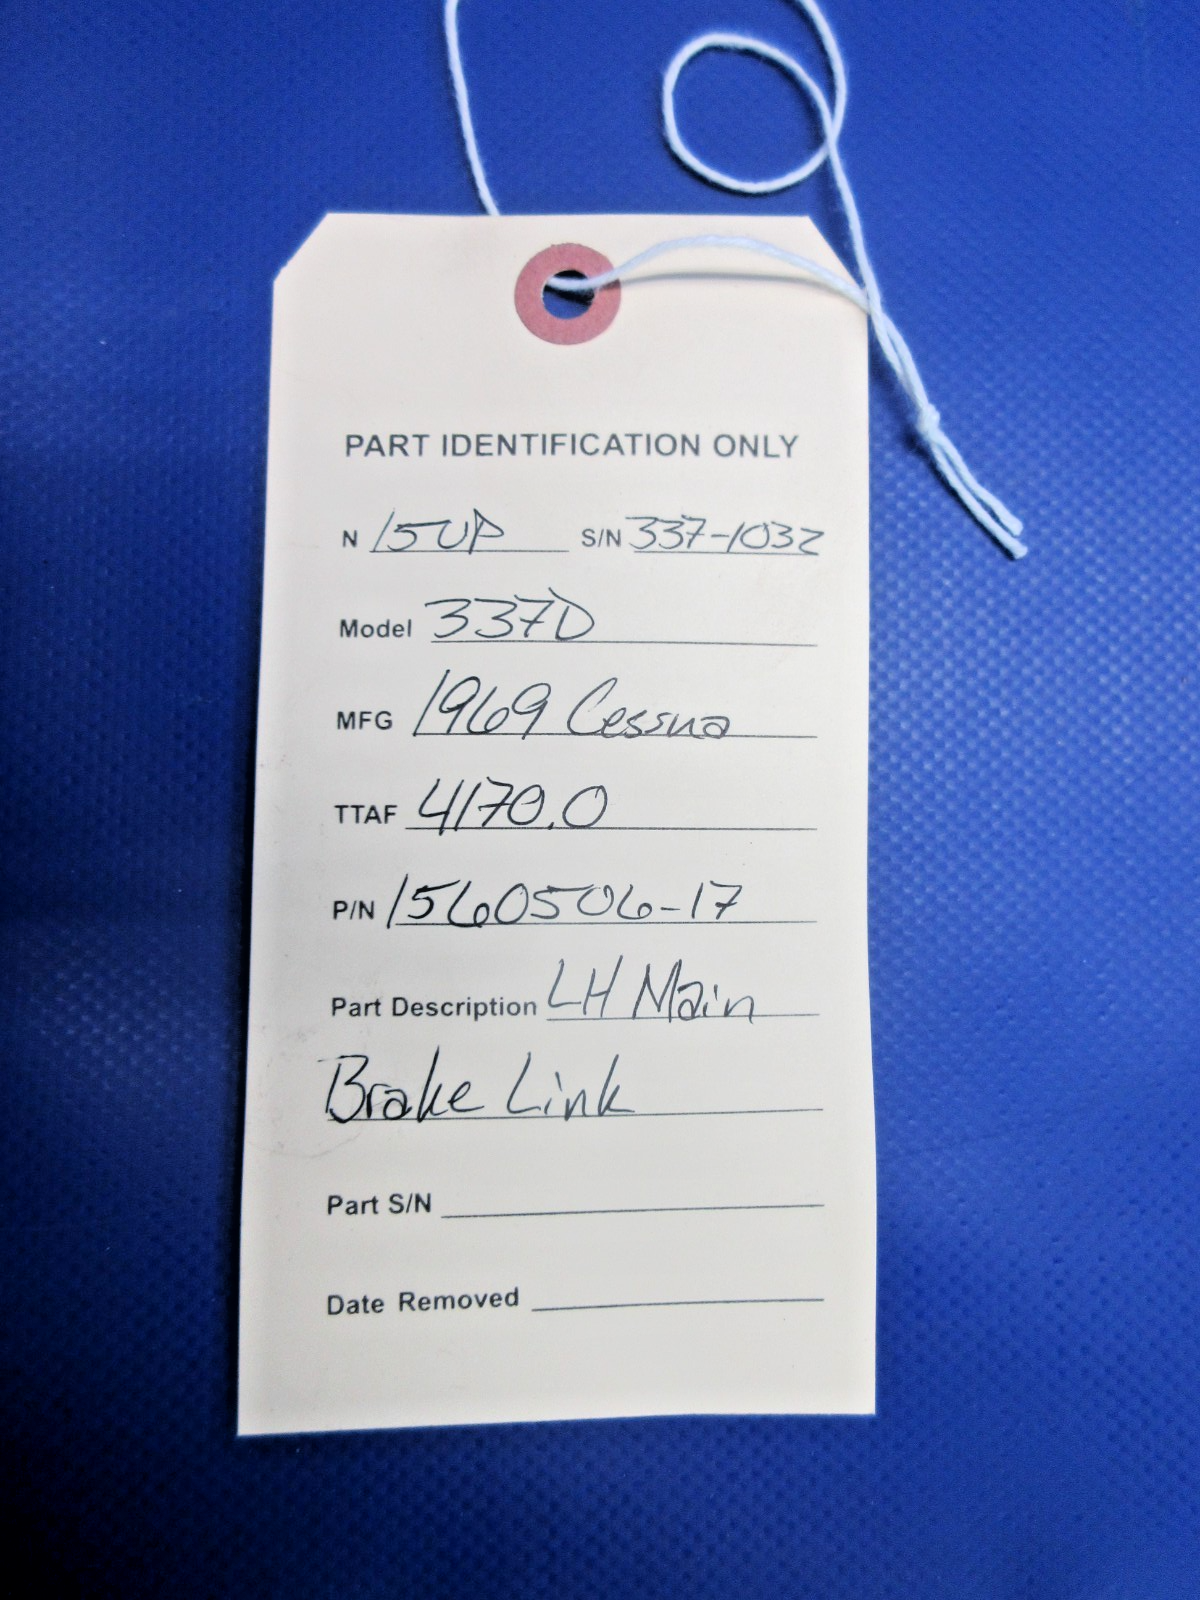 PART IDENTIFICATION ONLY
N 15UP S/N 337-1032
Model 337D
MFG 1969 Cessna
TTAF 4170.0
P/N 1560506-17
Part Description LH Main
Brake Link
Part S/N
Date Removed